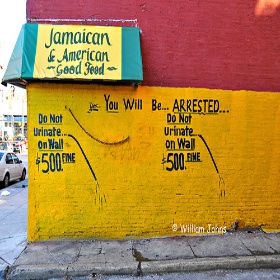 Jamaican
& American
~Good Food~
yes- You Will Be... ARRESTED...
Do Not
Urinate...
on Wall
$500. FINE
Do Not
Urinate...
on Wall
$500. FINE
© William Jones